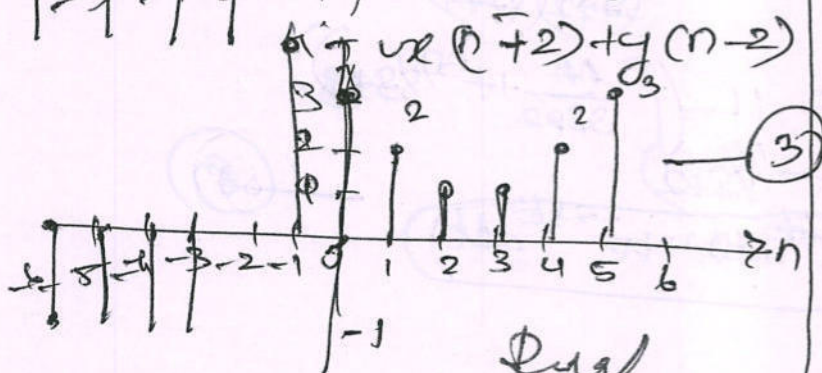 x(n+2)+y(n-2)
4
3
3
2
2
2
1
3
-6 -5 -4 -3 -2 -1 0 1 2 3 4 5 6 >n
-1